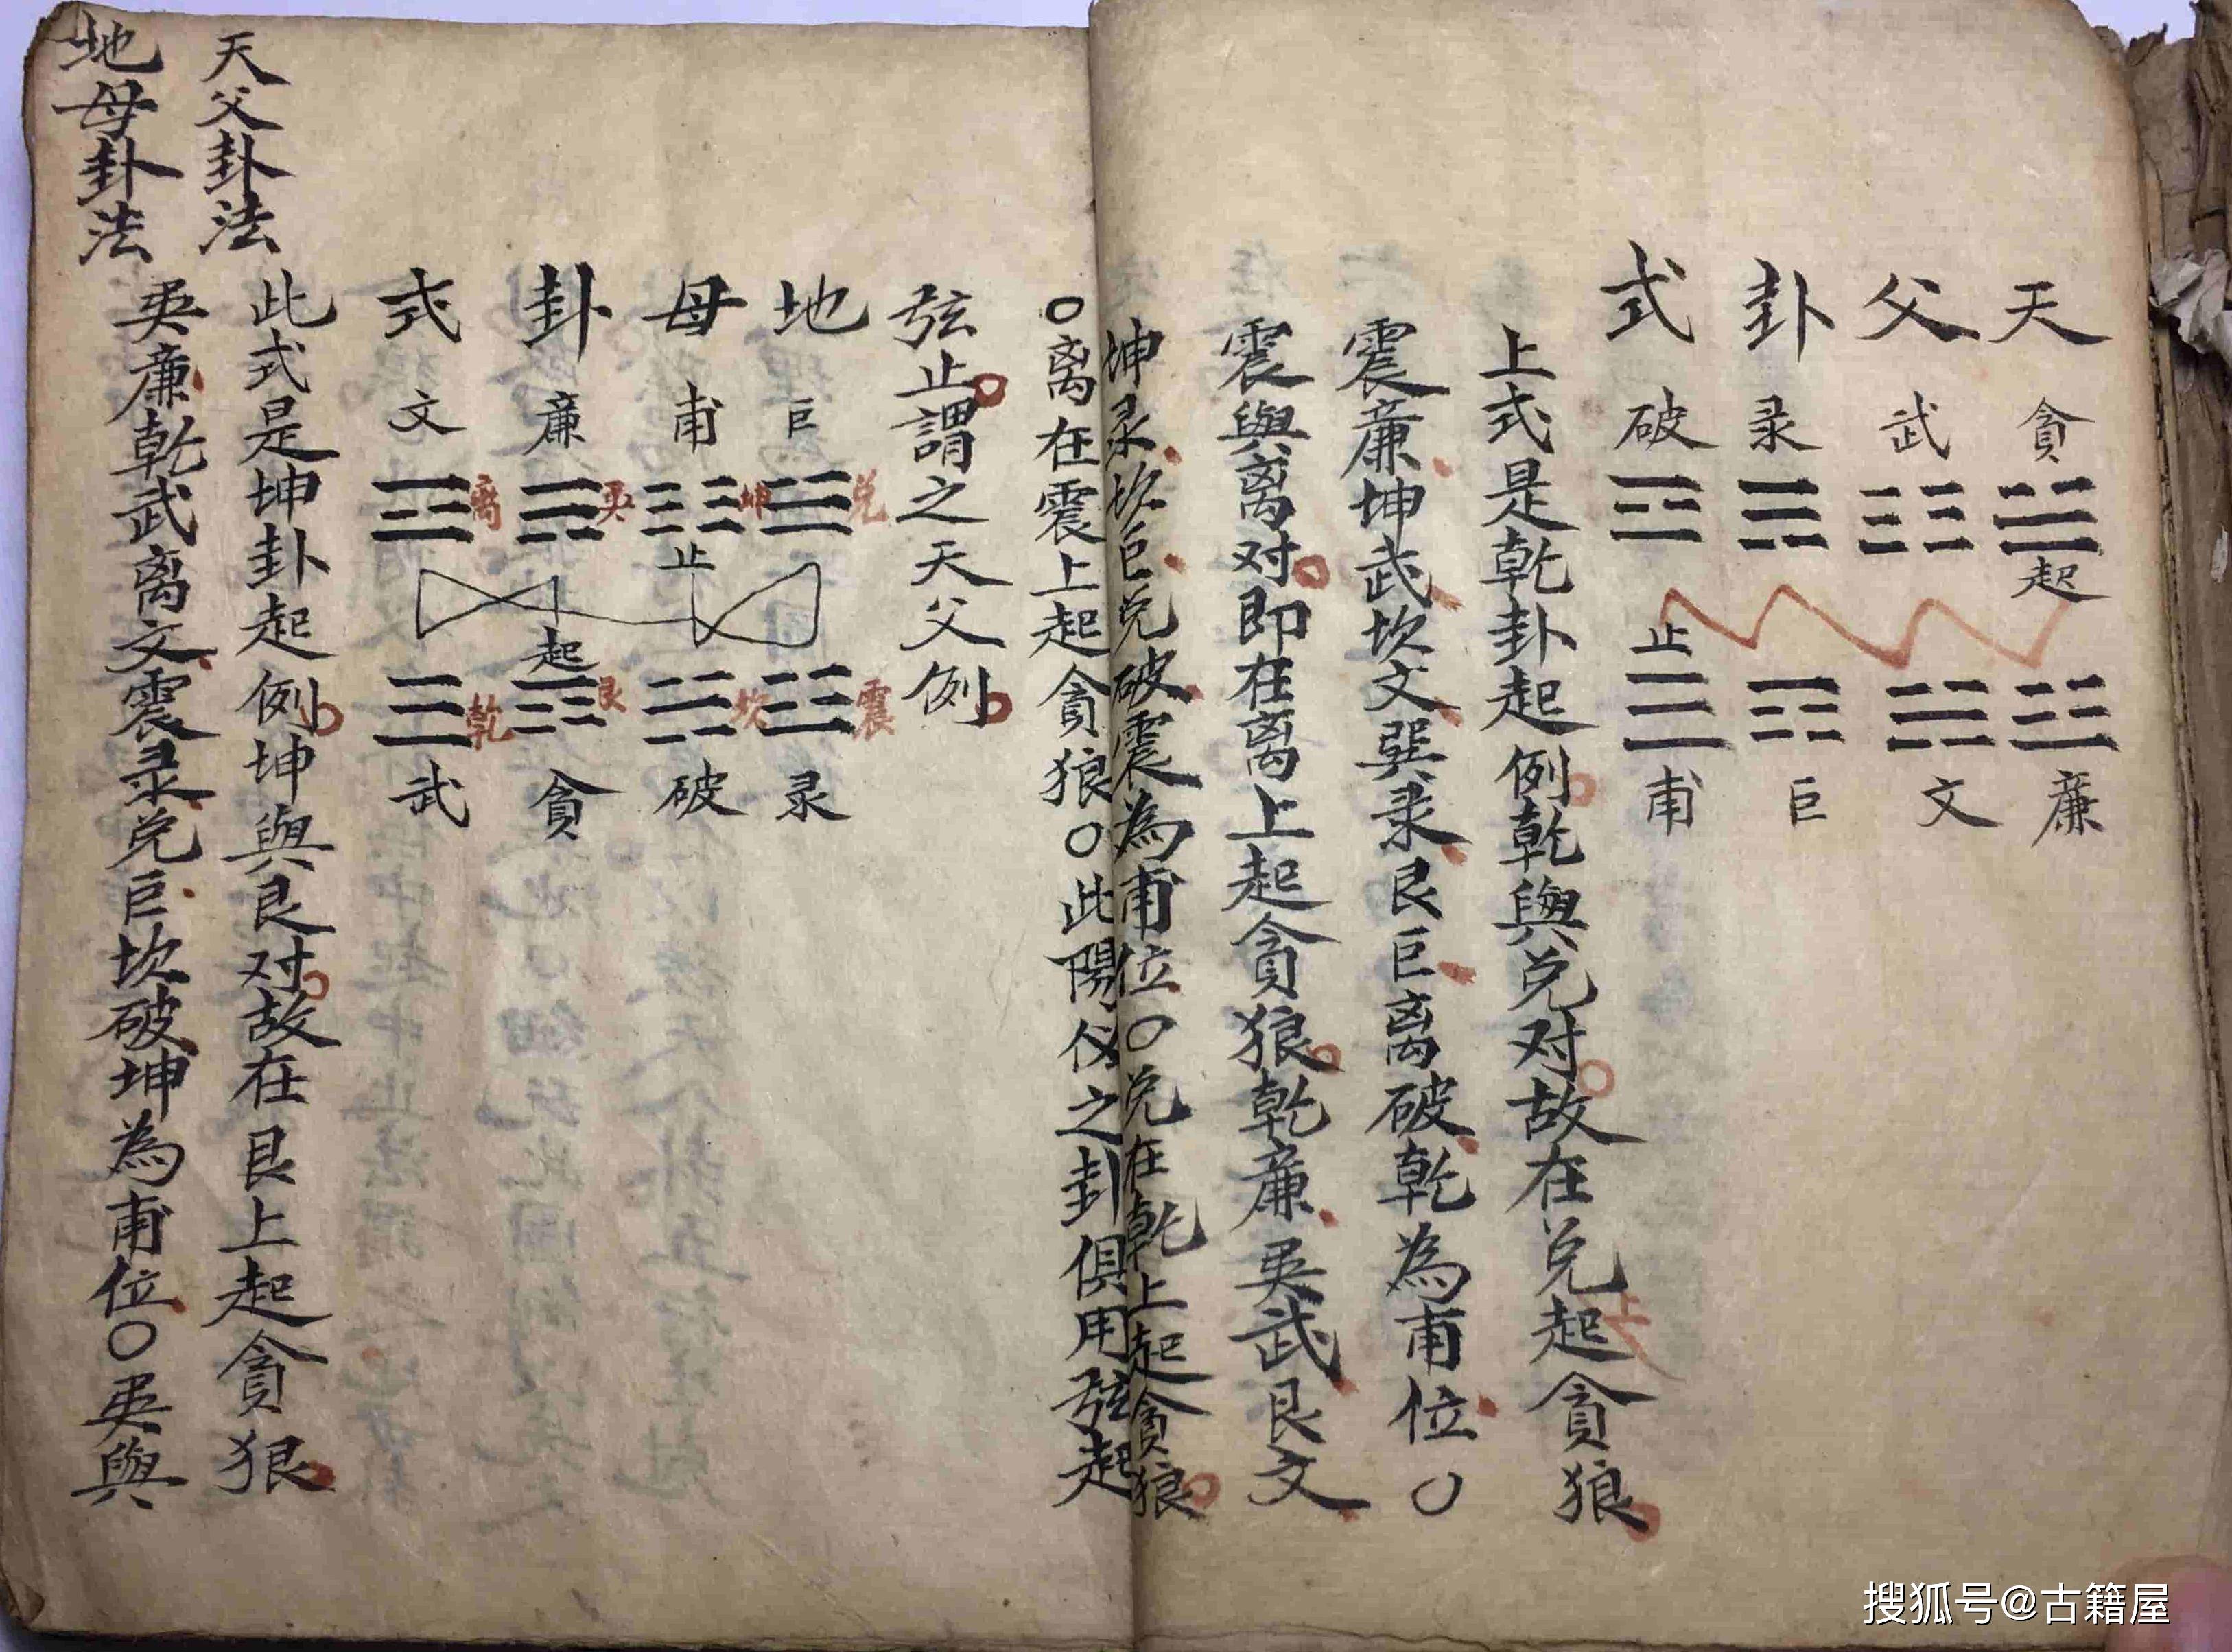 天父卦式
貪 武 录 破
起
止
廉 文 巨 甫
上式是乾卦起例乾與兑对故在兑起貪狼
上
震廉坤武坎文巽录艮巨离破乾為甫位〇
震與离对即在离上起貪狼乾廉吳武艮文
坤录坎巨兑破震為甫位〇兑在乾上起貪狼
〇离在震上起貪狼〇此陽仪之卦俱用弦起
弦止謂之天父例
地母卦式
巨 甫 廉 文
兑 坤 吳 离
止
起
震 坎 艮 乾
录 破 貪 武
天父卦法
此式是坤卦起例坤與艮对故在艮上起貪狠
地母卦法
吳廉乾武离文震录兑巨坎破坤為甫位〇吳與
搜狐号@古籍屋